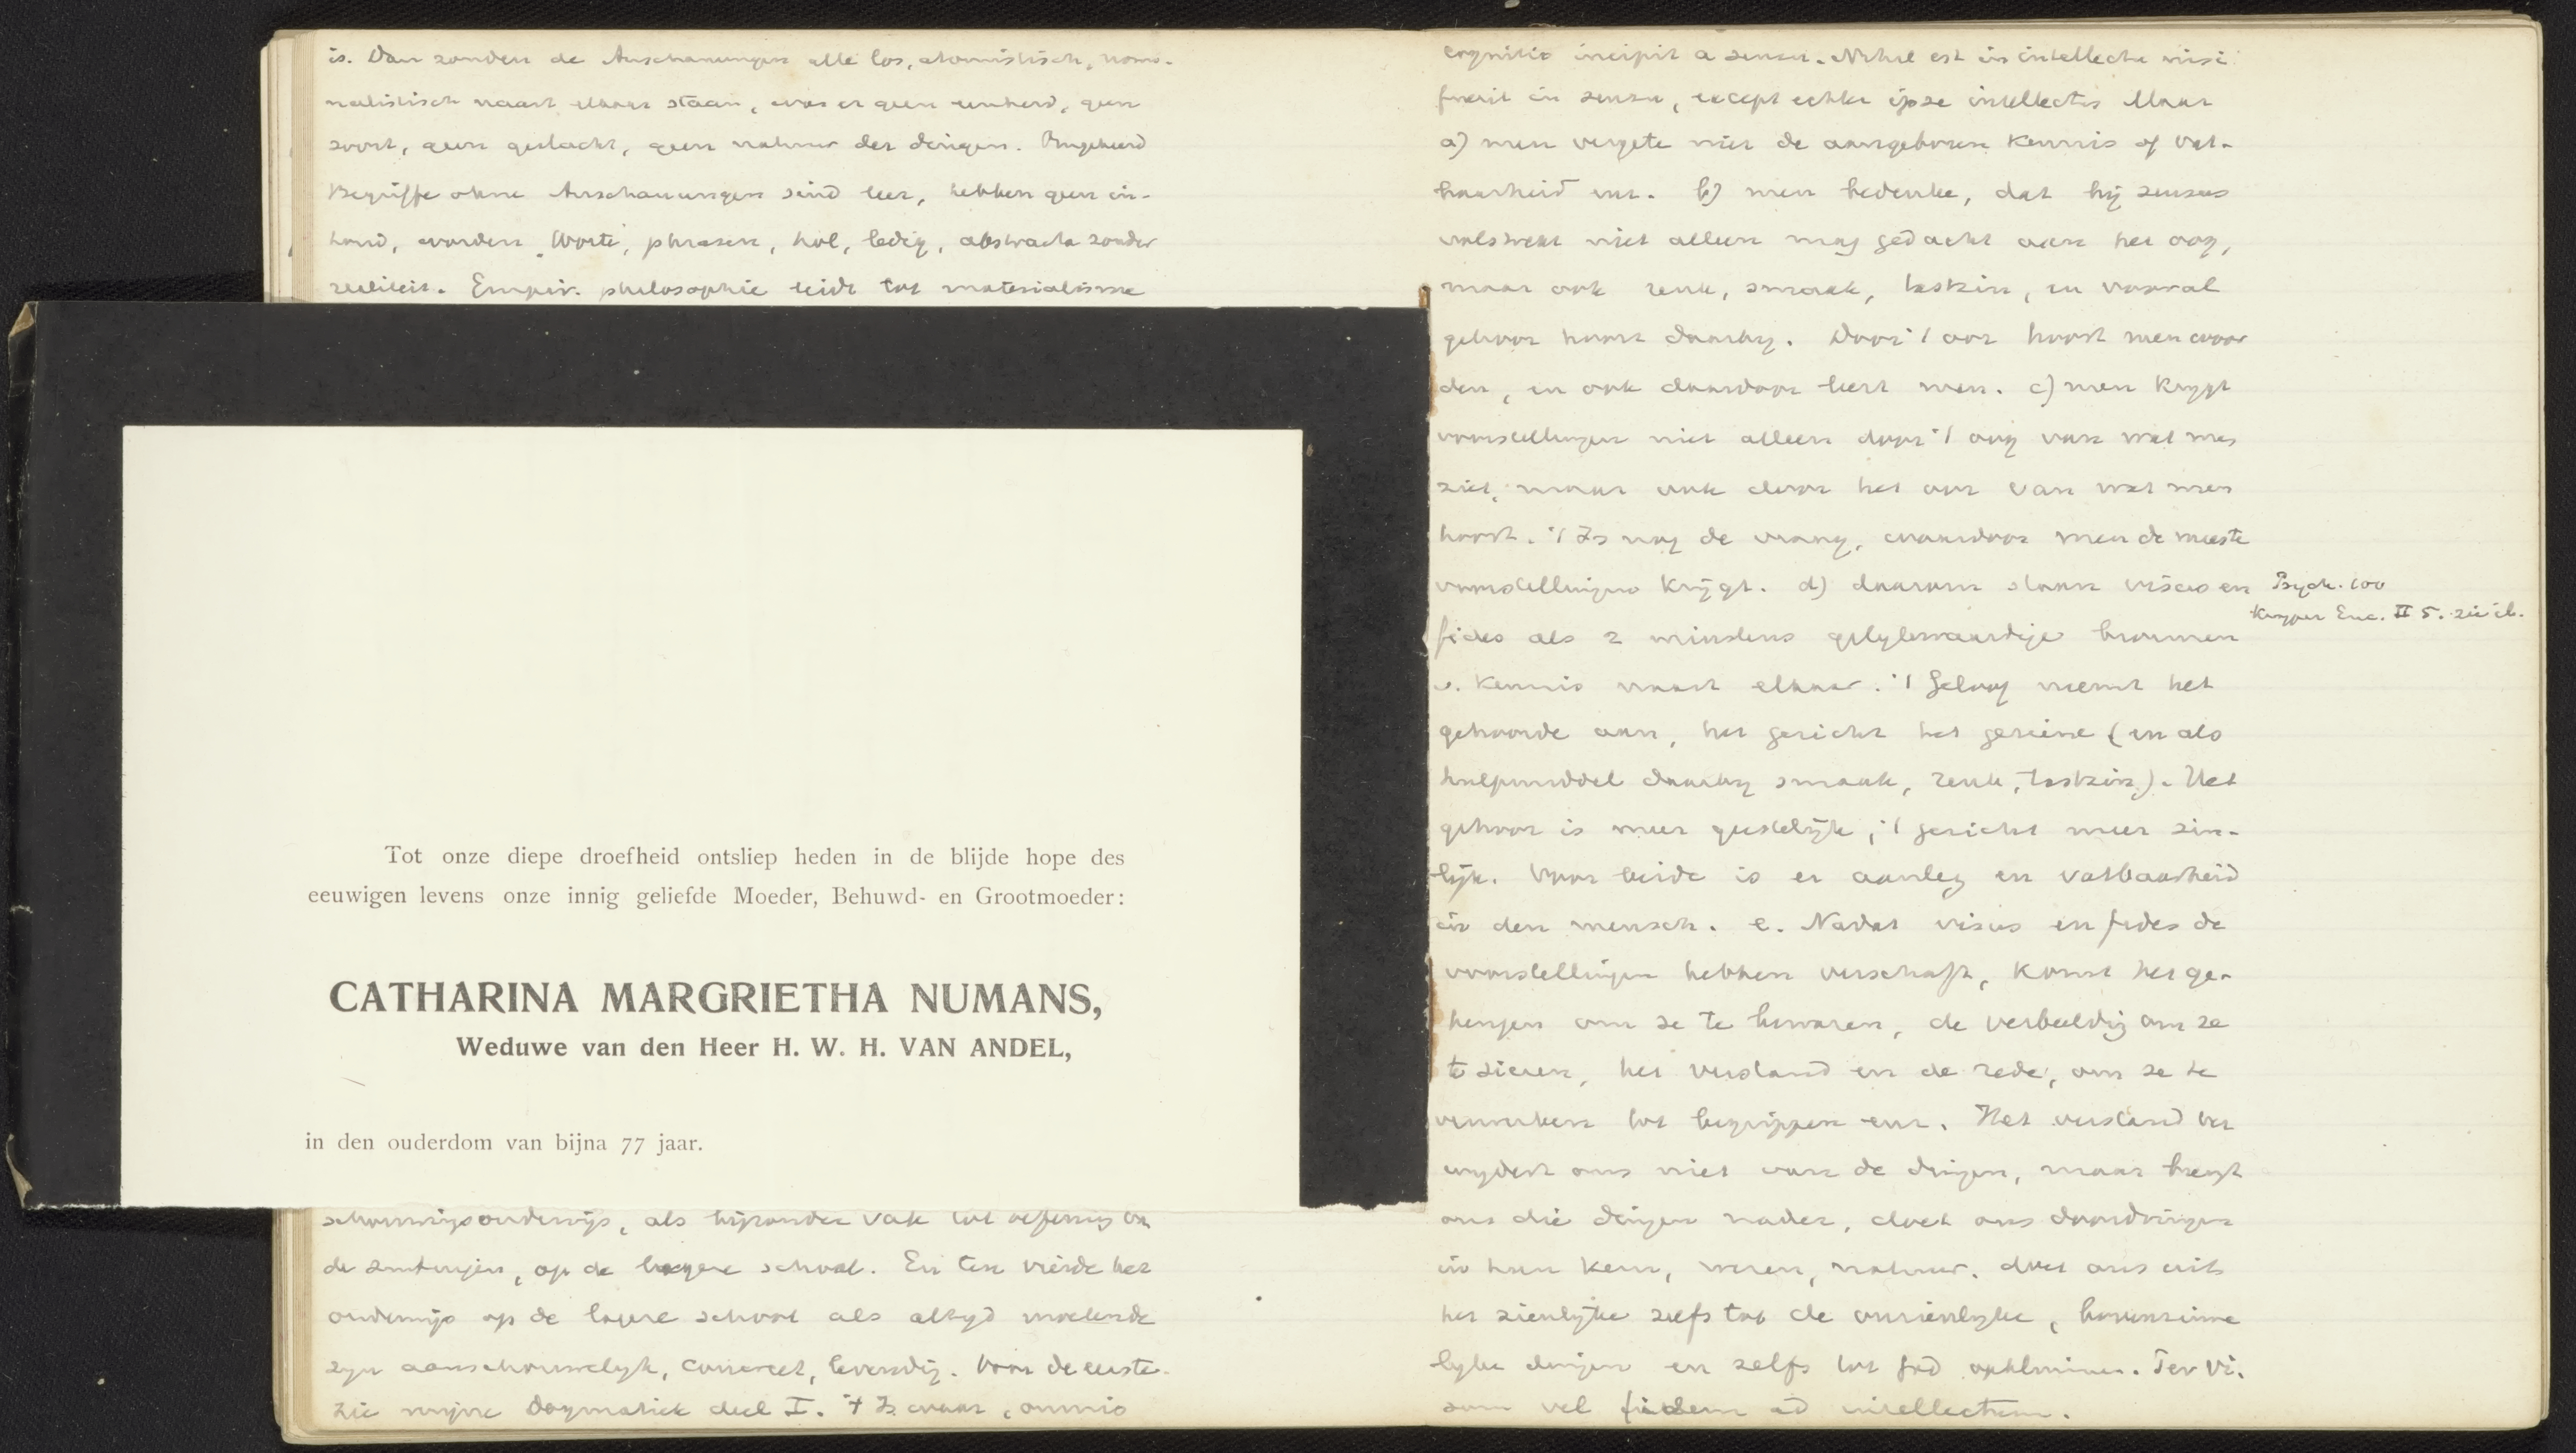 is. Dan zouden de Anschauungen alle los, atomistisch, nomi-
nalistisch naast elkaar staan, was er geen eenheid, geen
soort, geen geslacht, geen natuur der dingen. Omgekeerd
Begriffe ohne Anschauungen sind leer, hebben geen in-
houd, worden Worte, phrasen, hol, ledig, abstracta zonder
realiteit. Empir. philosophie leidt tot materialisme
Tot onze diepe droefheid ontsliep heden in de blijde hope des
eeuwigen levens onze innig geliefde Moeder, Behuwd- en Grootmoeder:
CATHARINA MARGRIETHA NUMANS,
Weduwe van den Heer H. W. H. VAN ANDEL,
in den ouderdom van bijna 77 jaar.
schouwingsonderwijs, als bijzonder vak tot oefening van
de zintuigen, op de lagere school. En ten vierde het
onderwijs op de lagere school als altyd moetende
zyn aanschouwelyk, concreet, levendig. Voor de eerste
zie mijne Dogmatiek deel I. 't Is waar, omnis
cognitio incipit a sensu. Nihil est in intellectu nisi
fuerit in sensu, except echter ipse intellectus Maar
a) men vergete niet de aangeboren kennis of vat-
baarheid enz. b) men bedenke, dat bij sensus
volstrekt niet alleen mag gedacht aan het oog,
maar ook reuk, smaak, tastzin, en vooral
gehoor hoort daarby. Door 't oor hoort men woor
den, en ook daardoor leert men. c) men krygt
voorstellingen niet alleen door 't oog van wat men
ziet, maar ook door het oor van wat men
hoort. 't Is nog de vraag, waardoor men de meeste
voorstellingen krijgt. d) daarom staan visus en
Psych. 100
Kuyper Enc. II 5. zie ib.
fides als 2 minstens gelykwaardige bronnen
v. kennis naast elkaar. 't Geloof neemt het
gehoorde aan, het gezicht het geziene (en als
hulpmiddel daarby smaak, reuk, tastzin). Het
gehoor is meer geestelijk, 't gezicht meer zin-
lijk. Voor beide is er aanleg en vatbaarheid
in den mensch. e. Nadat visus en fides de
voorstellingen hebben verschaft, komt het ge-
heugen om ze te bewaren, de verbeeldig om ze
te sieren, het verstand en de rede, om ze te
verwerken tot begrippen enz. Het verstand ver
wydert ons niet van de dingen, maar brengt
ons die dingen nader, doet ons doordringen
in hun kern, wezen, natuur. doet ons uit
het zienlijke zelfs tot de onzienlyke, bovenzinne
lyke dingen en zelfs tot God opklimmen. Per vi.
sum vel fidem ad intellectum.